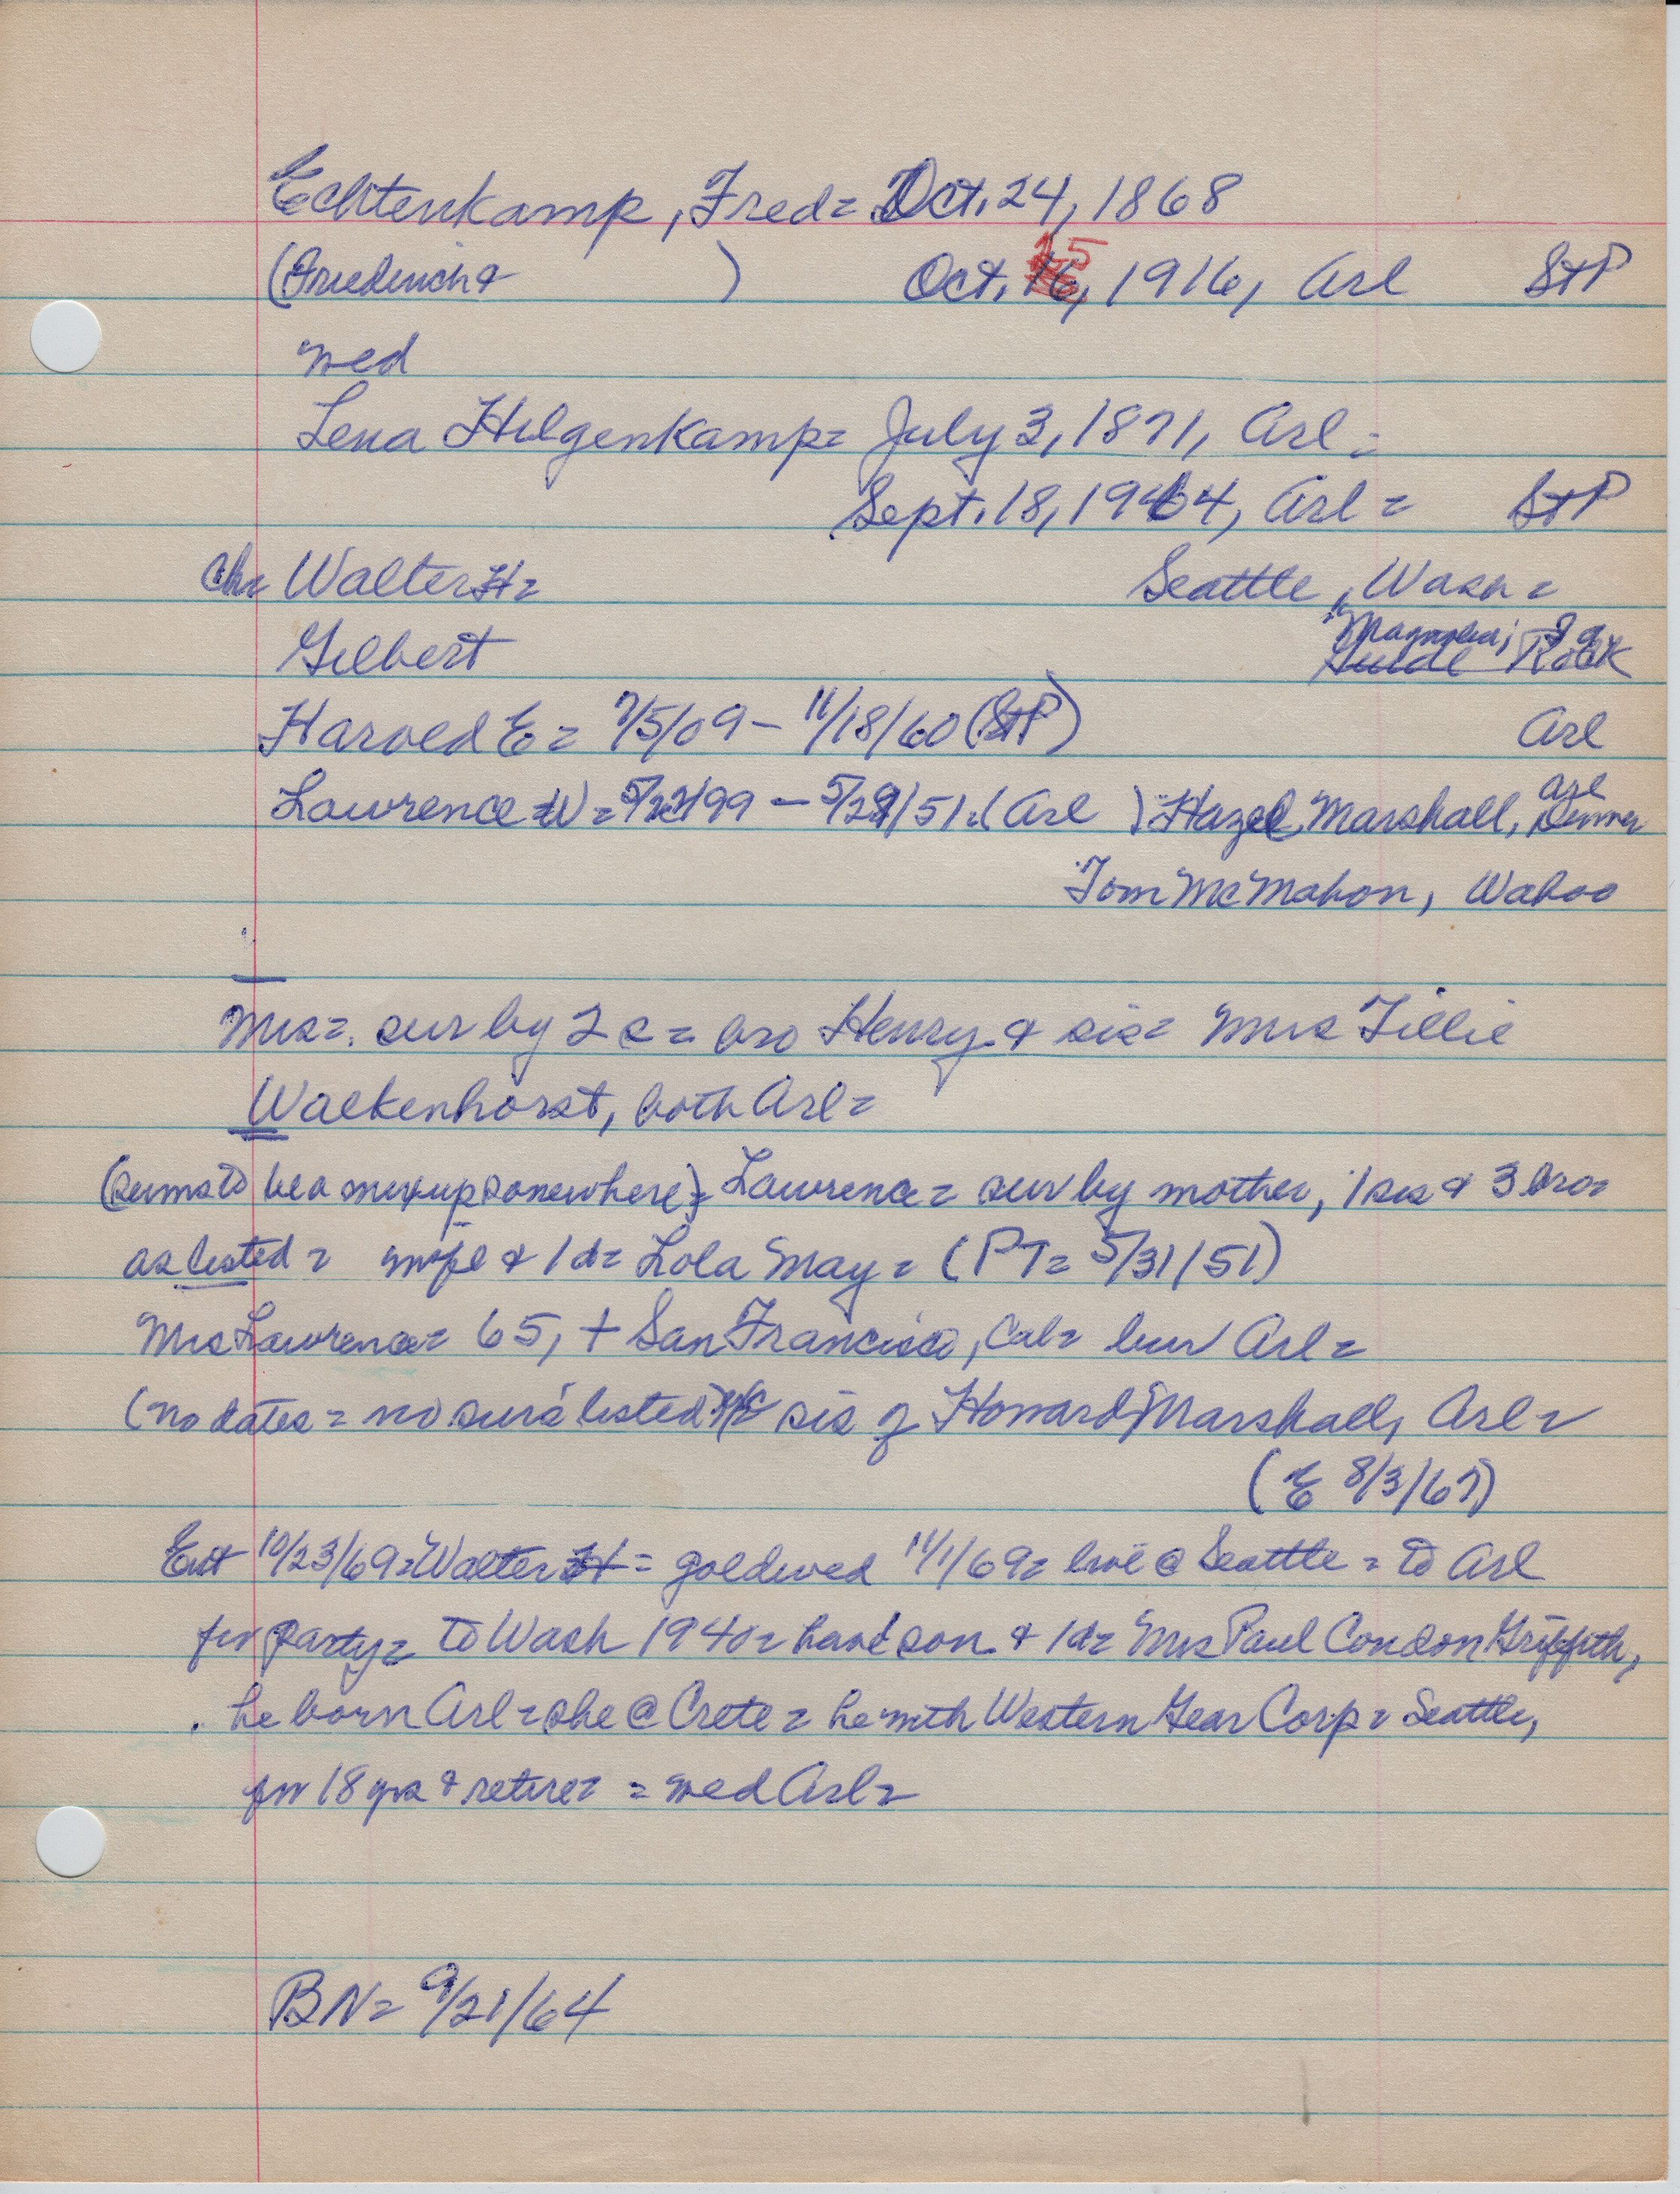 Echtenkamp, Fred = Oct. 24, 1868
(Friedrich & ) Oct. 15, 1916, Arl StP
wed
Lena Hilgenkamp = July 3, 1871, Arl =
Sept. 18, 1964, Arl = StP
Chr Walter H = Seattle, Wash =
Gilbert Magnolia, Ia
Guide Rock
Harold E = 7/5/09 - 11/18/60 (StP) Arl
Lawrence W = 5/22/99 - 5/29/51. (Arl ) Hazel Marshall, Arl Denver
Tom McMahon, Wahoo
Mrs =. sur by 2 s = bro Henry & sis = Mrs Tillie
Walkenhorst, both Arl =
(seems to be a mixup somewhere) = Lawrence = sur by mother, 1 sis & 3 bro =
as listed = & 1 d = Lola May = (PT = 5/31/51)
Mrs Lawrence = 65, + San Francisco, Cal = bur Arl =
(no dates = no surs listed) sis of Howard Marshall, Arl =
(E 8/3/67)
Ent 10/23/69 = Walter H = gold wed 11/1/69 = live @ Seattle = to Arl
for party = to Wash 1940 = had son & 1 d = Mrs Paul Condon Griffith,
he born Arl = she @ Crete = he with Western Gear Corp = Seattle,
for 18 yrs & retire = = wed Arl =
BN = 9/21/64